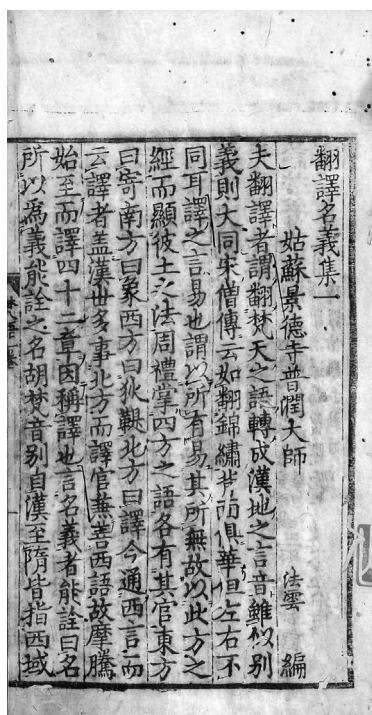 翻譯名義集一
姑蘇景德寺普潤大師 法雲 編
夫翻譯者謂翻梵天之語轉成漢地之言音雖似別
義則大同宋僧傳云如翻錦繡背面俱華但左右不
同耳譯之言易也謂以所有易其所無故以此方之
經而顯彼土之法周禮掌四方之語各有其官東方
曰寄南方曰象西方曰狄鞮北方曰譯今通西言而
云譯者盖漢世多事北方而譯官兼善西語故摩騰
始至而譯四十二章因稱譯也言名義者能詮曰名
所以爲義能詮之名胡梵音别自漢至隋皆指西域